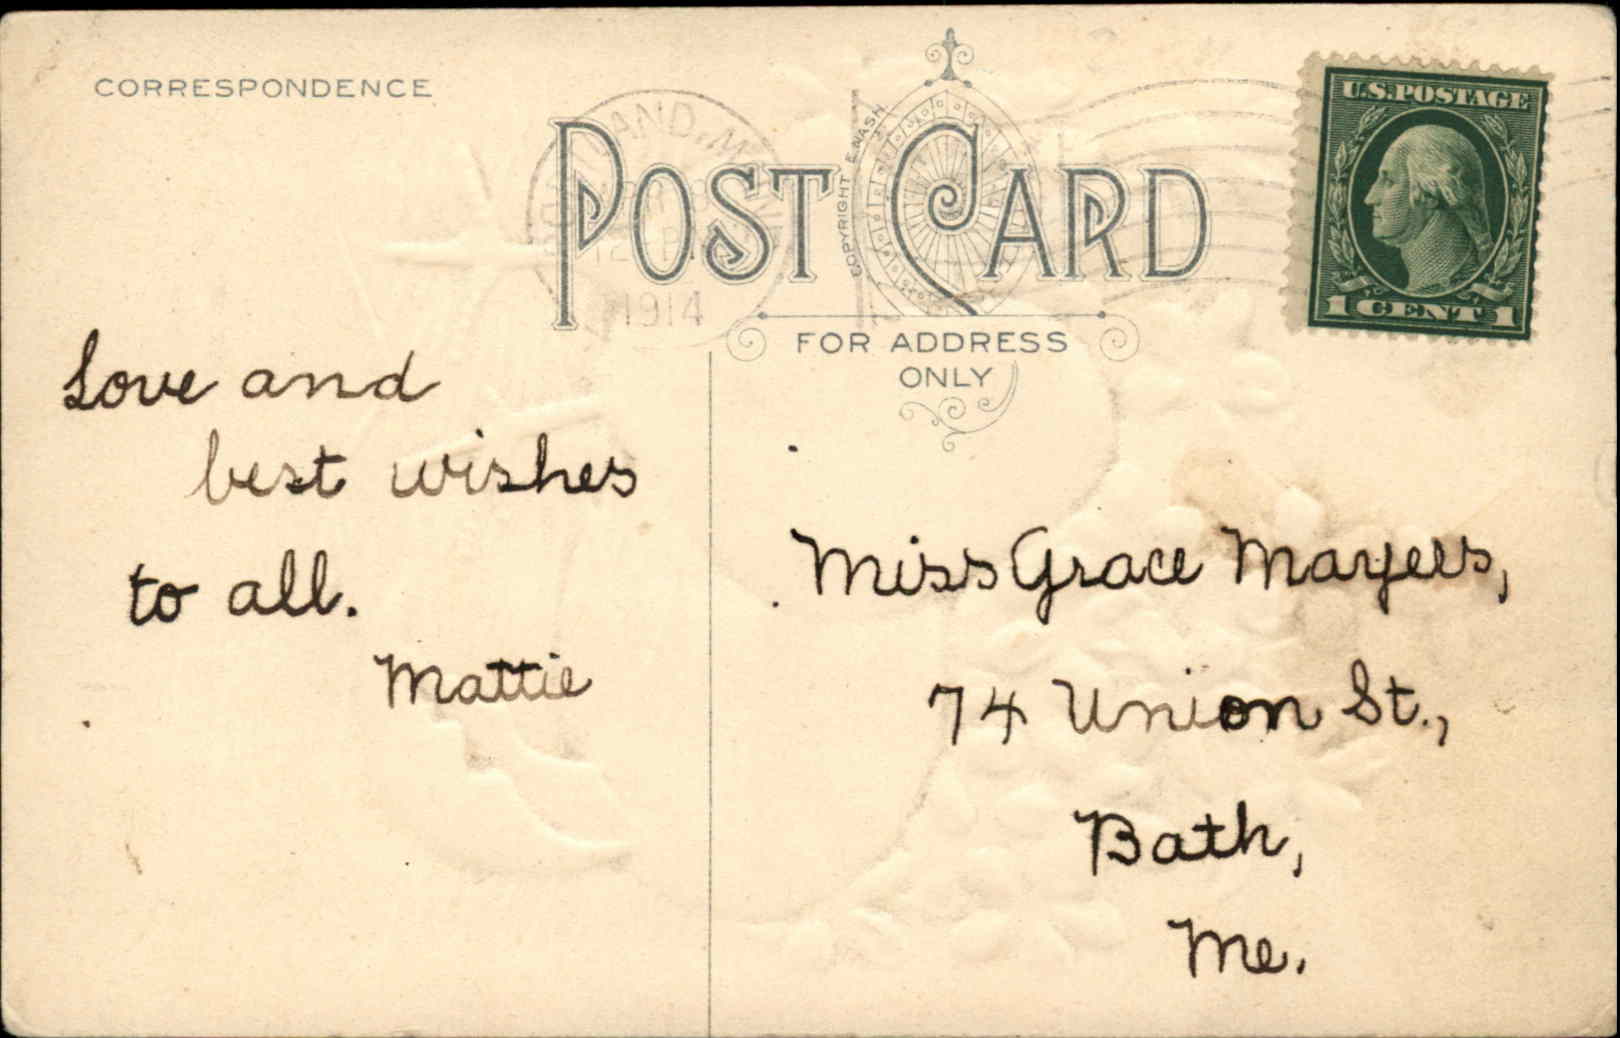 CORRESPONDENCE
POST CARD
COPYRIGHT E. NASH
FOR ADDRESS
ONLY
U.S. POSTAGE
1 CENT 1
1914
Love and
best wishes
to all.
Mattie
Miss Grace Mayers,
74 Union St.,
Bath,
Me.